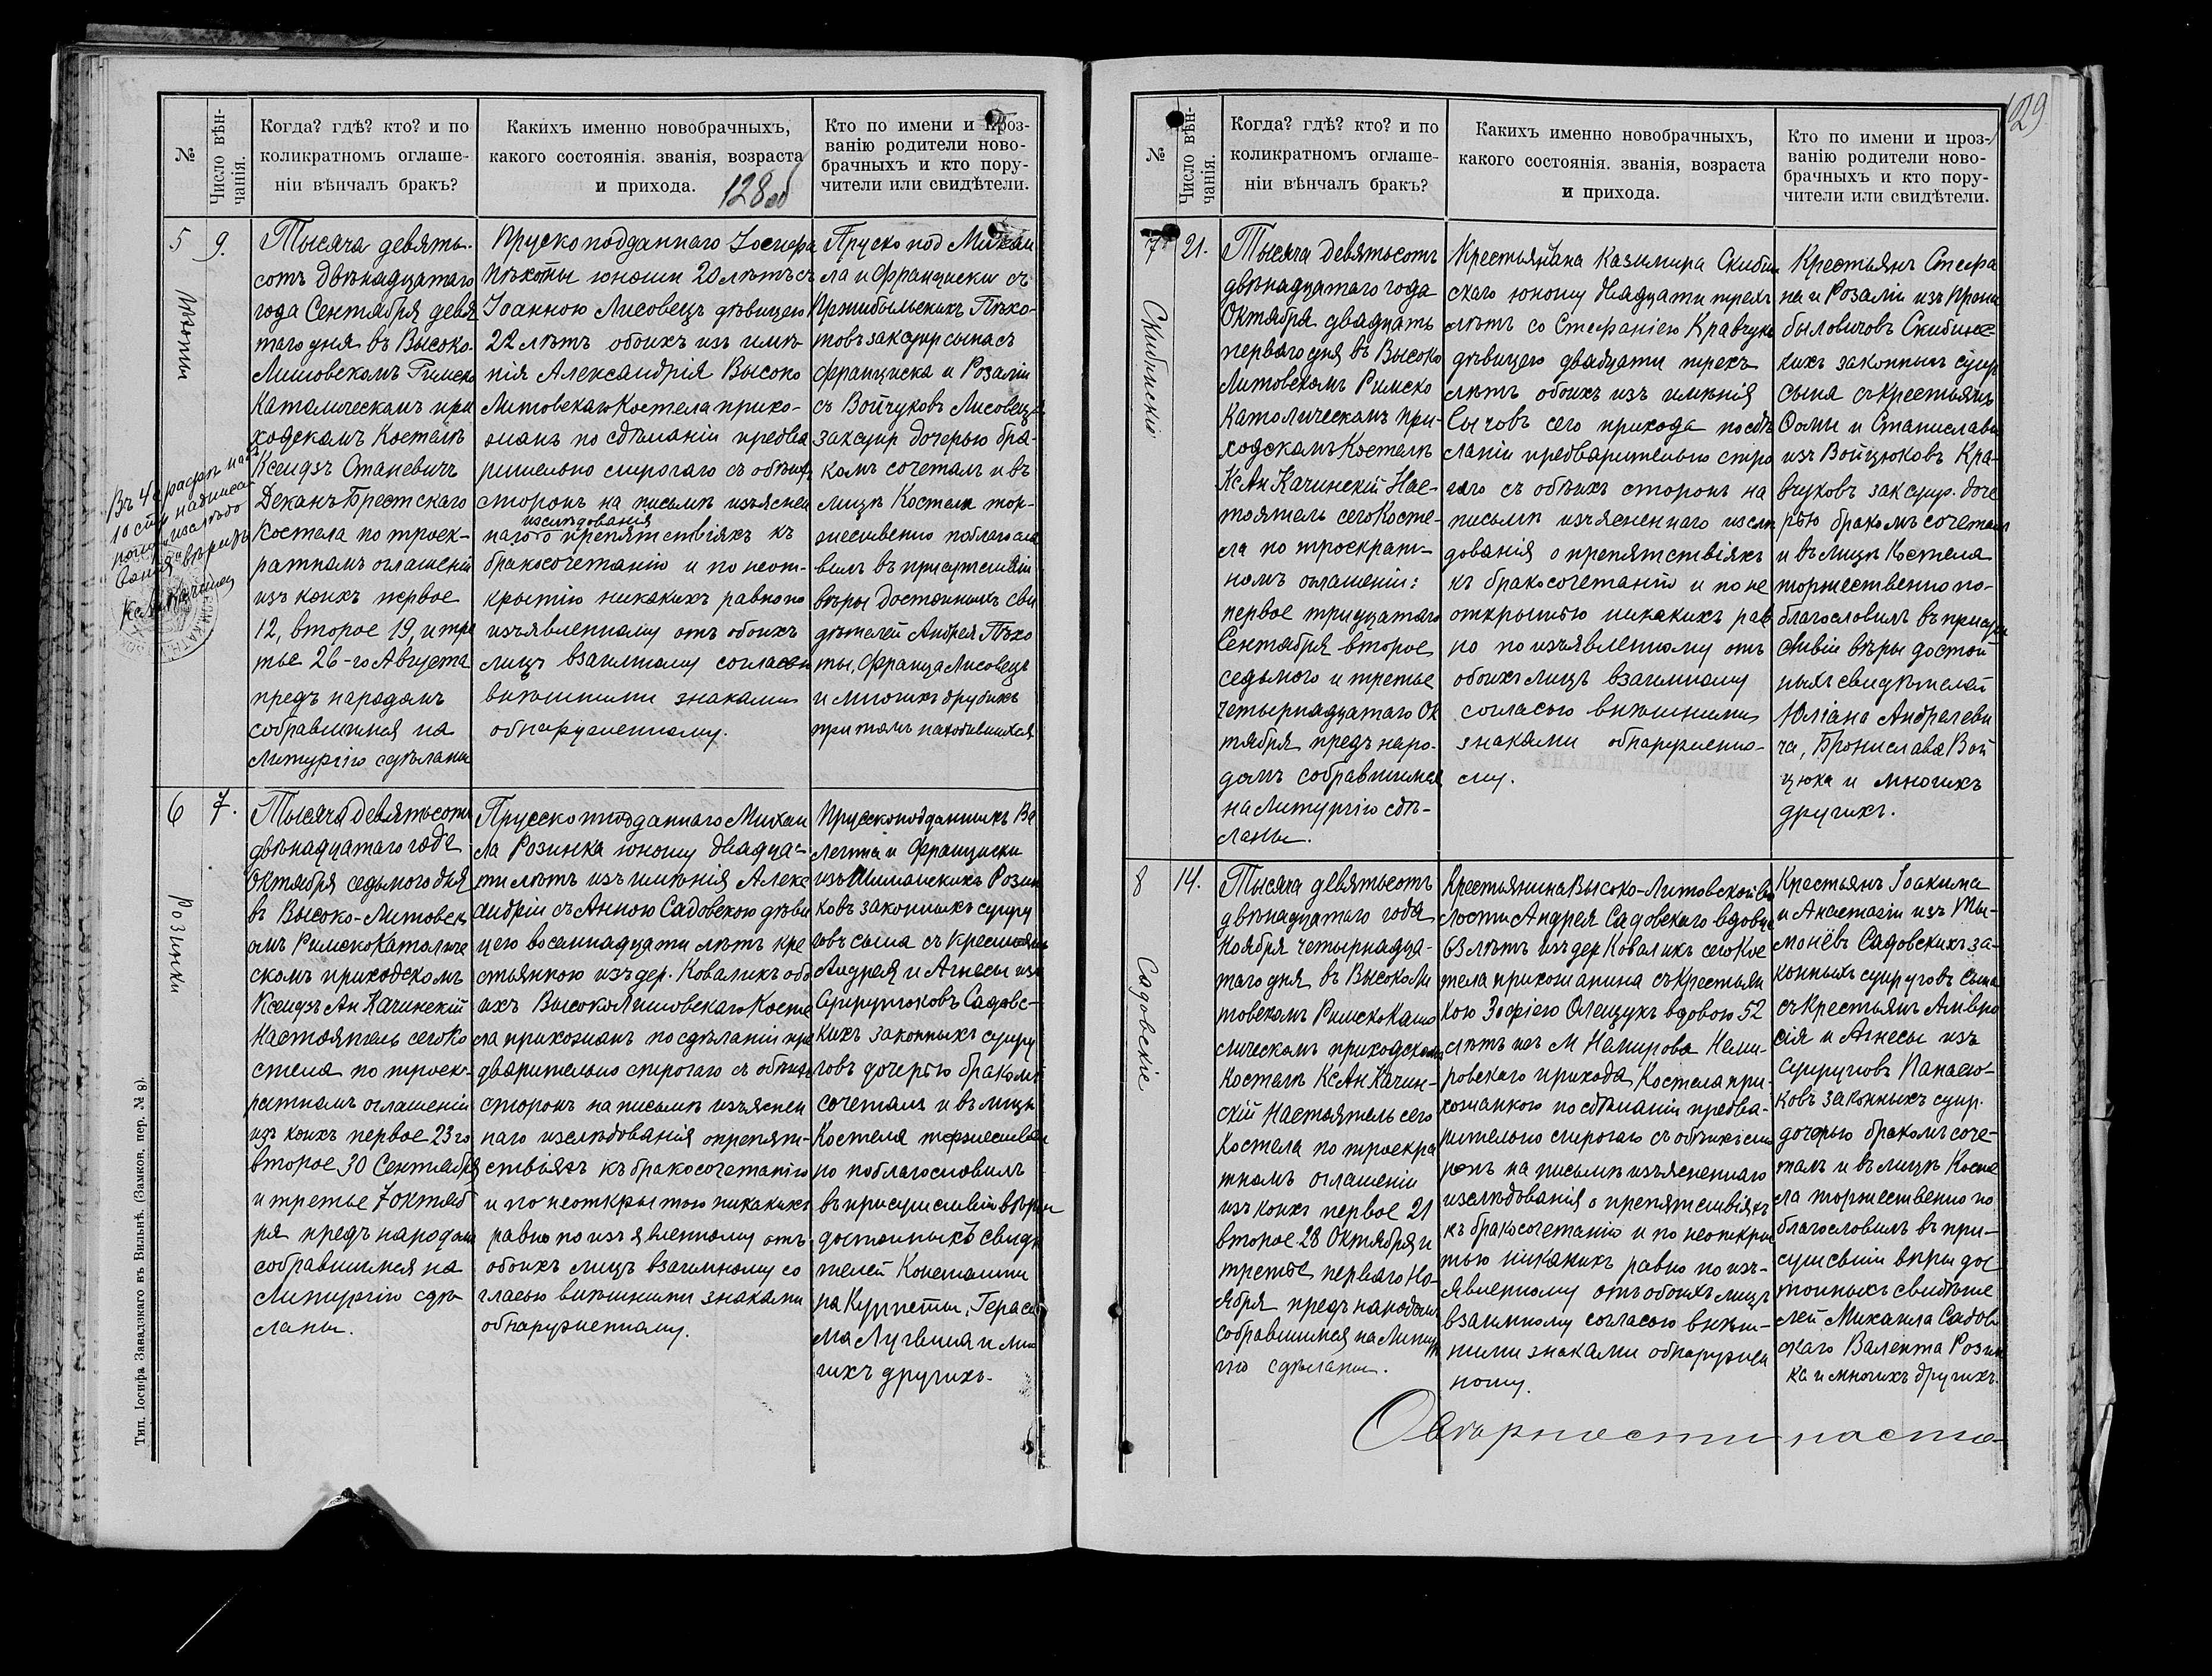 №
Число вѣн-
чанія.
Когда? гдѣ? кто? и по
коликратномъ оглаше-
ніи вѣнчалъ бракъ?
Какихъ именно новобрачныхъ,
какого состоянія. званія, возраста
и прихода.
128об
Кто по имени и проз-
ванію родители ново-
брачныхъ и кто пору-
чители или свидѣтели.
5
9.
Тысяча девять-
сотъ двѣнадцатаго
года Сентября девя
таго дня въ Высоко-
Литовскомъ Римско
Католическомъ при
ходскомъ Костелѣ
Ксендзъ Станевичъ
Деканъ Брестскаго
Костела по троек-
ратномъ оглашеніи
изъ коихъ первое
12, второе 19, и тре
тье 26-го Августа
предъ народомъ
собравшимся на
Литургію сдѣланы
Прускоподданнаго Іосифа
Пѣхоты юноши 20 лѣтъ съ
Іоанною Лисовецъ дѣвицею
22 лѣтъ обоихъ изъ имѣ
нія Александрія Высоко
Литовскаго Костела прихо-
жанъ по сдѣланіи предва
рительно строгаго съ обѣихъ
сторонъ на письмѣ изъяснен
изслѣдованія
наго о препятствіяхъ къ
бракосочетанію и по неот-
крытію никакихъ равно по
изъявленному отъ обоихъ
лицъ взаимному согласію
внѣшними знаками
обнаруженному.
Пруско под Михаи
ла и Франциски съ
Пржибыльскихъ Пѣхо-
товъ зак супр сына съ
Франциска и Розаліи
съ Войчуковъ Лисовецъ
зак супр дочерью бра-
комъ сочеталъ и въ
лицѣ Костела тор-
жественно поблагосло
вилъ въ присутствіи
вѣры достойныхъ сви
дѣтелей Андрея Пѣхо
ты, Франца Лисовецъ
и многихъ другихъ
притомъ находившихся
Въ 4 графѣ на
10 стр надписан
вѣрить
6
7.
Розынки
Тысяча девятьсотъ
двѣнадцатаго года
Октября седьмого дня
въ Высоко-Литовск
омъ РимскоКатоличе
скомъ приходскомъ
Ксендзъ Ан Качинскій
Настоятель сего Ко
стела по троек-
ратномъ оглашеніи
изъ коихъ первое 23го
второе 30 Сентября
и третье 7 октяб
ря предъ народомъ
собравшимся на
Литургію сдѣ-
ланы.
Прусско подданнаго Михаи
ла Розинка юношу двадца-
ти лѣтъ изъ имѣнія Алекс
андріи съ Анною Садовскою дѣви
цею восемнадцати лѣтъ кре
стьянкою изъ дер. Коваликъ обо
ихъ ВысокоЛитовскаго Косте
ла прихожанъ по сдѣланіи пре
дварительно строгаго съ обѣихъ
сторонъ на письмѣ изъяснен
наго изслѣдованія о препят-
ствіяхъ къ бракосочетанію
и по неоткрытію никакихъ
равно по изъявленному отъ
обоихъ лицъ взаимному со
гласію внѣшними знаками
обнаруженному.
Прусскоподданныхъ Ва
лента и Франциски
изъ Шиманскихъ Розин
ковъ законныхъ супру
говъ сына съ крестьянъ
Андрея и Агнесы изъ
Супрунюковъ Садовс-
кихъ законныхъ супру
говъ дочерью бракомъ
сочеталъ и въ лицѣ
Костела торжествен
но поблагословилъ
въ присутствіи вѣры
достойныхъ свидѣ
телей Константи
на Курпеты, Гераси
ма Лугвина и мно
гихъ другихъ.
Тип. Іосифа Завадзкаго въ Вильнѣ. (Замков. пер. № 8).
129
№
Число вѣн-
чанія.
Когда? гдѣ? кто? и по
коликратномъ оглаше-
ніи вѣнчалъ бракъ?
Какихъ именно новобрачныхъ,
какого состоянія. званія, возраста
и прихода.
Кто по имени и проз-
ванію родители ново-
брачныхъ и кто пору-
чители или свидѣтели.
7
21.
Скибинскіе
Тысяча девятьсотъ
двѣнадцатаго года
Октября двадцать
перваго дня въ Высоко
Литовскомъ Римско
Католическомъ при-
ходскомъ Костелѣ
Кс Ан Качинскій Нас-
тоятель сего Косте-
ла по троекрат-
номъ оглашеніи:
первое тридцатаго
Сентября второе
седьмого и третье
четырнадцатаго Ок
тября предъ наро-
домъ собравшимся
на Литургію сдѣ-
ланы.
Крестьянина Казимира Скибин
скаго юношу двадцати трехъ
лѣтъ со Стефаніею Кравчукъ
дѣвицею двадцати трехъ
лѣтъ обоихъ изъ имѣнія
Сычовъ сего прихода по сдѣ
ланіи предварительно стро
гаго съ обѣихъ сторонъ на
письмѣ изъясненнаго изслѣ
дованія о препятствіяхъ
къ бракосочетанію и по не
открытію никакихъ рав
но по изъявленному отъ
обоихъ лицъ взаимному
согласію внѣшними
знаками обнаруженно-
му.
Крестьянъ Стефа
на и Розаліи изъ Прони
быловичовъ Скибинс
кихъ законныхъ супр
сына съ крестьянъ
Ѳомы и Станиславы
изъ Войцюковъ Кра-
вчуковъ зак супр. доче
рью бракомъ сочеталъ
и въ лицѣ Костела
торжественно по-
благословилъ въ присут
ствіи вѣры достой
ныхъ свидѣтелей
Юліана Андреееви
ча, Бронислава Вой
цюка и многихъ
другихъ.
8
14.
Садовскіе
Тысяча девятьсотъ
двѣнадцатаго года
Ноября четырнадца-
таго дня въ ВысокоЛи
товскомъ РимскоКато
лическомъ приходскомъ
Костелѣ Кс Ан Качин-
скій Настоятель сего
Костела по троекра
тномъ оглашеніи
изъ коихъ первое 21
второе 28 Октября и
третье перваго Но-
ября предъ народомъ
собравшимся на Литур
гію сдѣланы.
Крестьянина Высоко-Литовской Во
лости Андрея Садовскаго вдовца
63 лѣтъ изъ дер Коваликъ сего Кос
тела прихожанина съ Крестьян
кою Зофіею Олещукъ вдовою 52
лѣтъ изъ М Немирова Неми-
ровскаго прихода Костела при-
хожанкою по сдѣланіи предва-
рительно строгаго съ обѣихъ сто
ронъ на письмѣ изъясненнаго
изслѣдованія о препятствіяхъ
къ бракосочетанію и по неоткры
тію никакихъ равно по изъ-
явленному отъ обоихъ лицъ
взаимному согласію внѣш-
ними знаками обнаружен
ному.
Крестьянъ Іоакима
и Анастасіи изъ Ты-
монёвъ Садовскихъ за-
конныхъ супруговъ сына
съ Крестьянъ Амвро
сія и Агнесы изъ
Супруновъ Панасю-
ковъ законныхъ супр.
дочерью бракомъ соче-
талъ и въ лицѣ Косте
ла торжественно по
благословилъ въ при-
сутствіи вѣры дос
тойныхъ свидѣте
лей Михаила Садов
скаго Валента Розин
ка и многихъ другихъ.